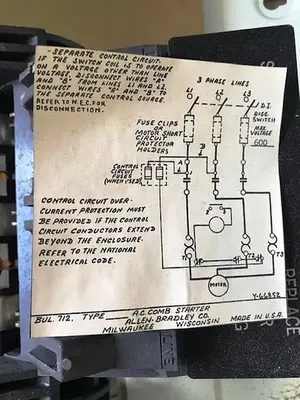 - SEPARATE CONTROL CIRCUIT-
IF THE SWITCH COIL IS TO OPERATE
ON A VOLTAGE OTHER THAN LINE
VOLTAGE, DISCONNECT WIRES "A"
AND "B" FROM LINES L1 AND L2.
CONNECT WIRES "A" AND "B" TO
THE SEPARATE CONTROL SOURCE.
REFER TO N.E.C. FOR
DISCONNECTION.
3 PHASE LINES
L1 L2 L3
D.I.
DISC.
SWITCH
MAX.
VOLTAGE
600
FUSE CLIPS
OR
MOTOR SHORT
CIRCUIT
PROTECTOR
HOLDERS
B
A
CONTROL
CIRCUIT
FUSES
(WHEN USED)
CONTROL CIRCUIT OVER-
CURRENT PROTECTION MUST
BE PROVIDED IF THE CONTROL
CIRCUIT CONDUCTORS EXTEND
BEYOND THE ENCLOSURE.
REFER TO THE NATIONAL
ELECTRICAL CODE.
2 3
T1 T2 T3
MOTOR
Y-66352
BUL. 712. TYPE A.C. COMB STARTER
ALLEN-BRADLEY CO.
MILWAUKEE WISCONSIN MADE IN U.S.A.